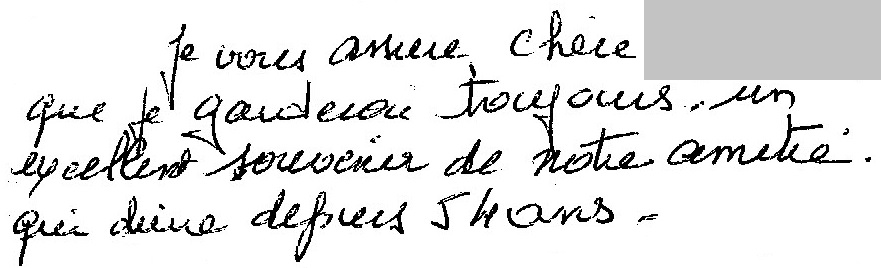 Je vous assure, chère
que je garderai toujours un
excellent souvenir de notre amitié.
qui dure depuis 54 ans.